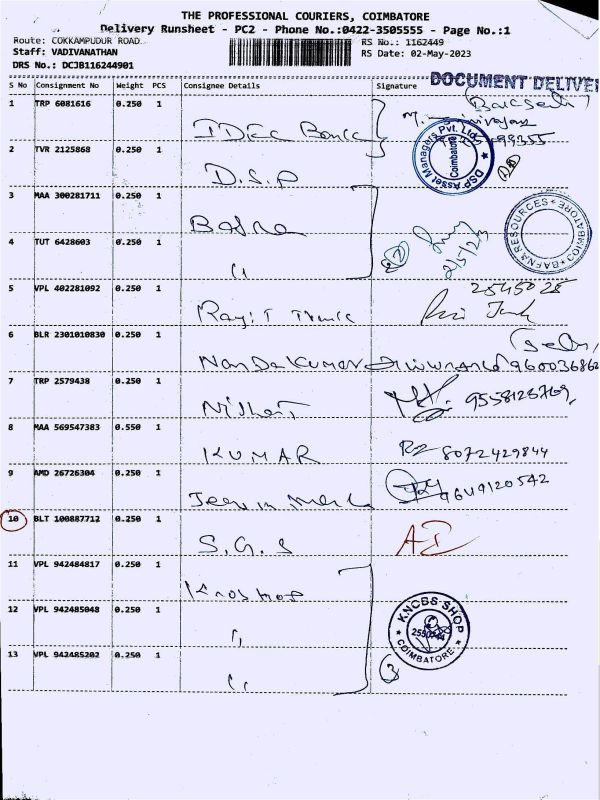 THE PROFESSIONAL COURIERS, COIMBATORE
Delivery Runsheet - PC2 - Phone No.:0422-3505555 - Page No.:1
Route: COKKAMPUDUR ROAD
RS No.: 1162449
Staff: VADIVANATHAN
RS Date: 02-May-2023
DRS No.: DCJB116244901
DOCUMENT DELIVE
S No Consignment No Weight PCS Consignee Details Signature
1 TRP 6081616 0.250 1
99355
2 TVR 2125868 0.250 1 D.S.P
DSP Asset Managers Pvt. Ltd. Coimbatore
3 MAA 300281711 0.250 1 Bafna
BAFNA RESOURCES COIMBATORE
4 TUT 6428603 0.250 1 "
2/5/23
5 VPL 402281092 0.250 1
2545025
6 BLR 2301010830 0.250 1 Nandakumar 960036862
7 TRP 2579438 0.250 1 9558128769
8 MAA 569547383 0.550 1 KUMAR 8072429844
9 AMD 26726304 0.250 1 9649120542
10 BLT 100887712 0.250 1 S.G.S
11 VPL 942484817 0.250 1
12 VPL 942485048 0.250 1 "
KNOBS SHOP COIMBATORE
13 VPL 942485202 0.250 1 "
3